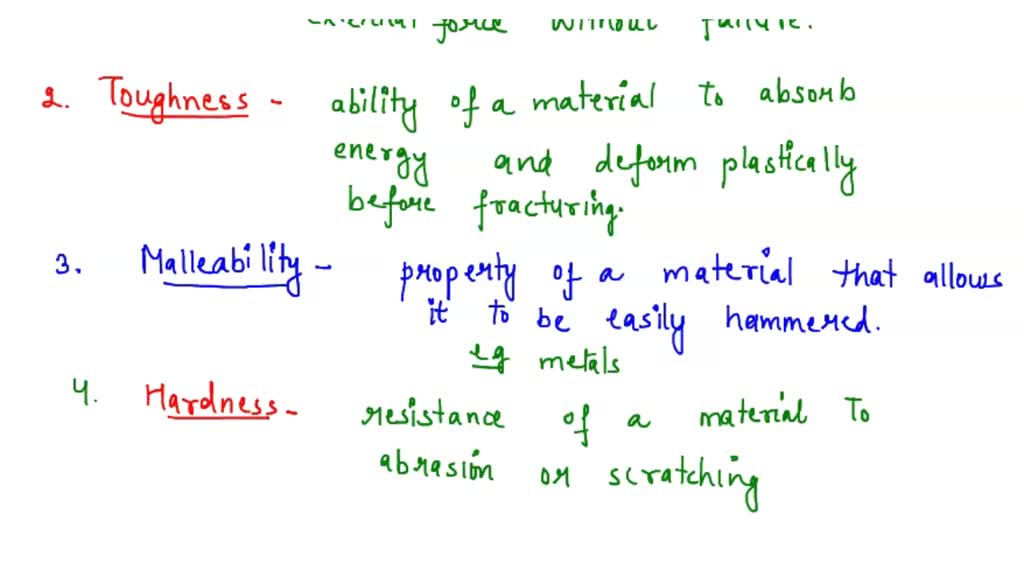 external force without failure.
2. Toughness - ability of a material to absorb
energy and deform plastically
before fracturing.
3. Malleability - property of a material that allows
it to be easily hammered.
eg metals
4. Hardness - resistance of a material To
abrasion or scratching